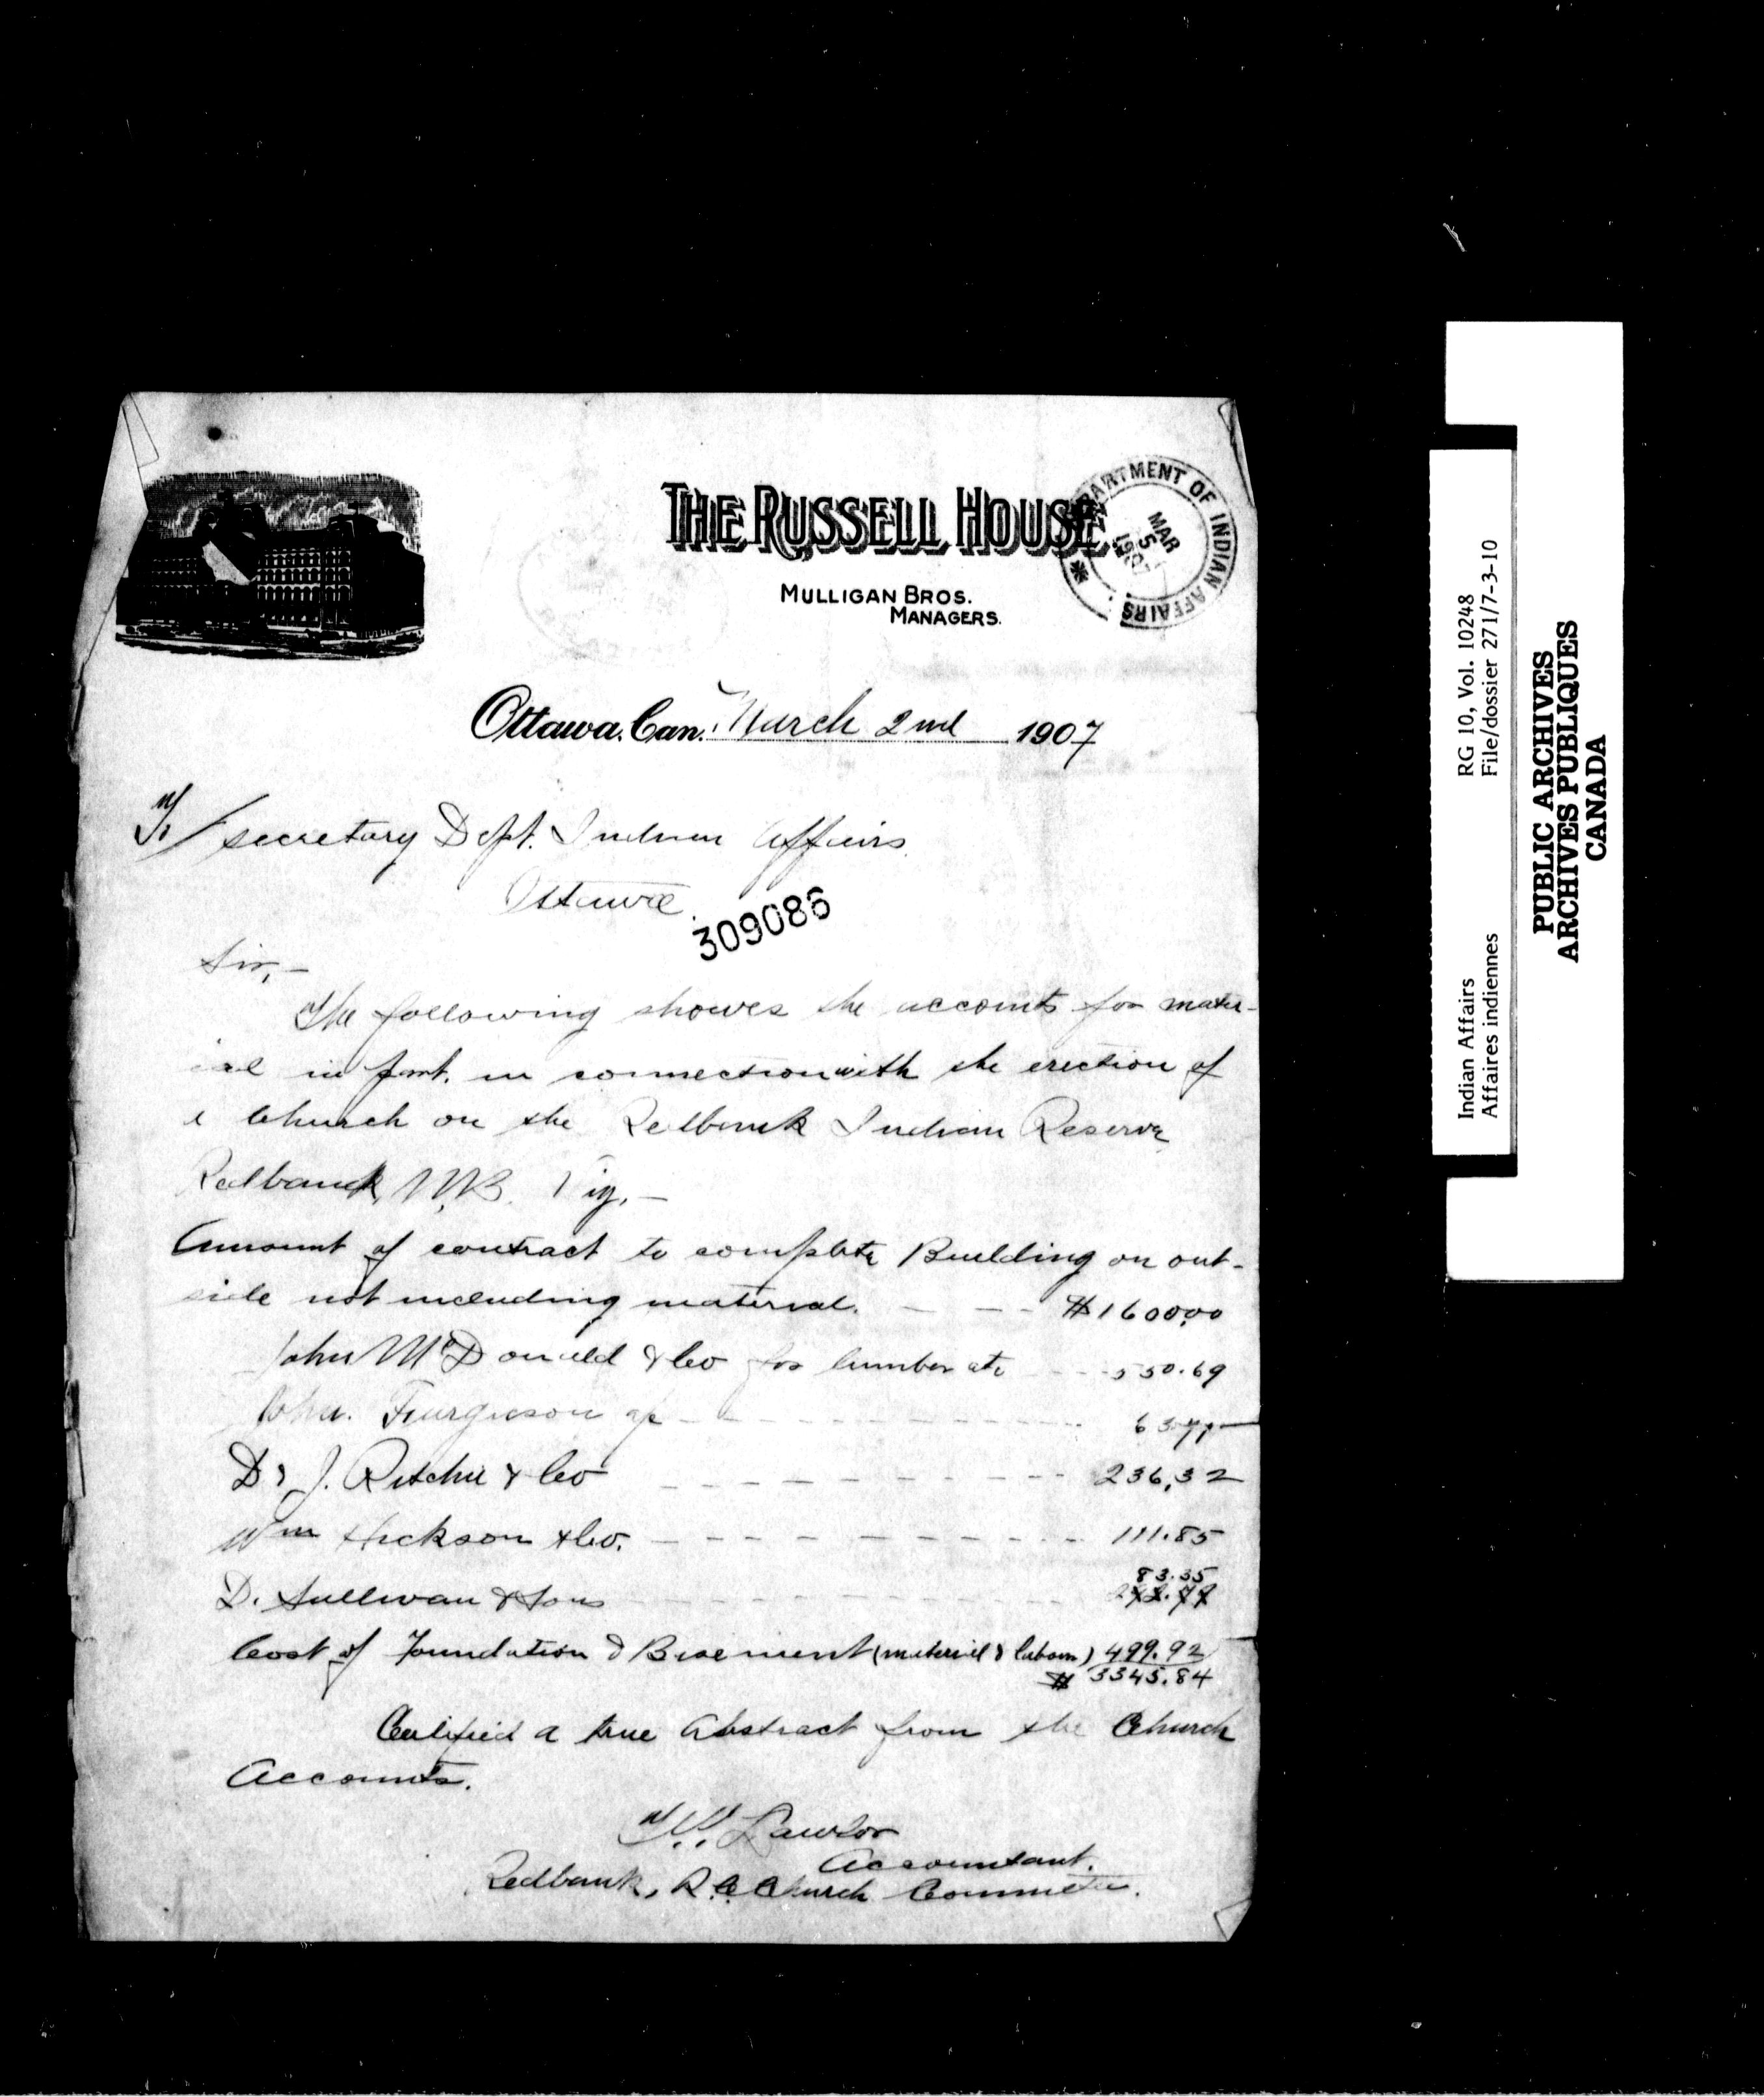 THE RUSSELL HOUSE
MULLIGAN BROS.
MANAGERS.
DEPARTMENT OF INDIAN AFFAIRS
MAR 5 1907
Ottawa. Can. March 2nd 1907
To/Secretary Dept. Indian Affairs
Ottawa.
309086
Sir, -
The following shows the accounts for mater-
ial in part. in connection with the erection of
a Church on the Redbank Indian Reserve
Redbank, N.B. Viz, -
Amount of contract to complete Building on out-
side not including material. - - - $1600.00
John McDonald & Co for lumber etc - - - 550.69
John. Furguson - - - 63.71
D & J. Ritchie & Co - - - 236,32
Wm Hickson & Co. - - - 111.85
83.35
D. Sullivan & Sons - - -
Cost of Foundation & Basement (material & labom) 499.92
$ 3345.84
Certified a true Abstract from the Church
Accounts.
Lawlor
Accountant.
Redbank, R.C. Church Committee.
Indian Affairs RG 10, Vol. 10248
Affaires indiennes File/dossier 271/7-3-10
PUBLIC ARCHIVES
ARCHIVES PUBLIQUES
CANADA